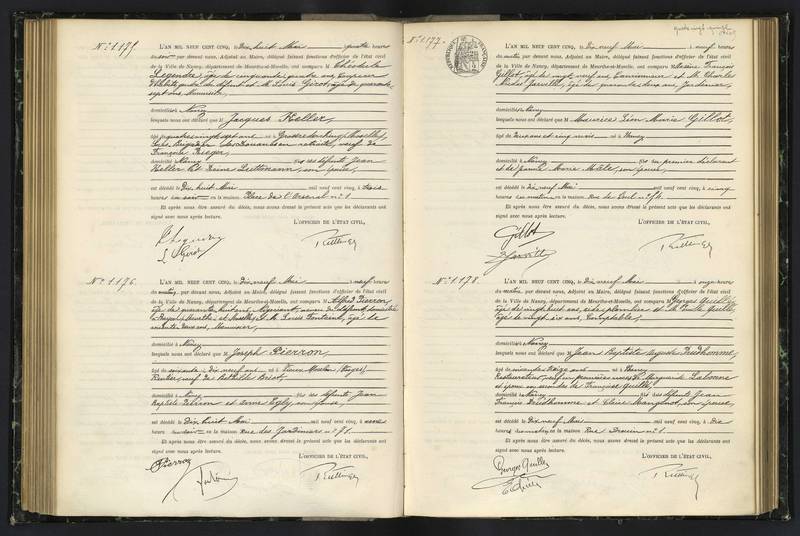 N° 1.175.
L'AN MIL NEUF CENT CINQ, le Dix huit Mai à quatre heures
du soir par devant nous, Adjoint au Maire, délégué faisant fonctions d'officier de l'état civil
de la Ville de Nancy, département de Meurthe-et-Moselle, ont comparu M Théodule
Legendre, âgé de cinquante quatre ans,
et M. Louis Girot, âgé de quarante
sept ans, Menuisier,
domiciliés à Nancy
lesquels nous ont déclaré que M Jacques Keller,
âgé quatre vingt sept ans né à (Moselle)
Brigadier des Douanes en retraite, veuf de
Françoise Rieger,
domicilié Nancy fils des défunts Jean
Keller et Reine Luttmann, son épouse,
est décédé le Dix huit Mai mil neuf cent cinq, à trois
heures du soir en la maison Place de l'Arsenal n° 1
Et après nous être assuré du décès, nous avons dressé le présent acte que les déclarants ont
signé avec nous après lecture.
L'OFFICIER DE L'ÉTAT CIVIL,
N° 1.176.
L'AN MIL NEUF CENT CINQ, le Dix neuf Mai à neuf heures
du matin, par devant nous, Adjoint au Maire, délégué faisant fonctions d'officier de l'état civil
de la Ville de Nancy, département de Meurthe-et-Moselle, ont comparu M Alfred Pierron,
âgé de quarante huit ans, Négociant, neveu du défunt, domicilié
(Meurthe et Moselle) et M. Louis Fontaine, âgé de
soixante deux ans, Menuisier,
domicilié à Nancy
lesquels nous ont déclaré que M Joseph Pierron,
âgé soixante dix neuf ans né à Vieux Moulin (Vosges)
Rentier, veuf de
domicilié à Nancy fils des défunts Jean
Baptiste Pierron et Anne Égly, son épouse,
est décédé le Dix huit Mai mil neuf cent cinq, à onze
heures du soir en la maison Rue des Jardiniers n° 71.
Et après nous être assuré du décès, nous avons dressé le présent acte que les déclarants ont
signé avec nous après lecture.
L'OFFICIER DE L'ÉTAT CIVIL,
Pierron
N° 1.177.
RÉPUBLIQUE FRANÇAISE
L'AN MIL NEUF CENT CINQ, le Dix neuf Mai à neuf heures
du matin par devant nous, Adjoint au Maire, délégué faisant fonctions d'officier de l'état civil
de la Ville de Nancy, département de Meurthe-et-Moselle, ont comparu M François
Gillot, âgé de vingt neuf ans, Camionneur et M. Charles
âgé de quarante deux ans, Jardinier,
domiciliés à Nancy
lesquels nous ont déclaré que M Maurice Léon Marie Gillot,
âgé de Deux ans et cinq mois né à Nancy
domicilié à Nancy fils du premier déclarant
et de Jeanne Marie son épouse,
est décédé le dix neuf Mai mil neuf cent cinq, à cinq
heures du matin en la maison Rue de Toul n°
Et après nous être assuré du décès, nous avons dressé le présent acte que les déclarants ont
signé avec nous après lecture.
L'OFFICIER DE L'ÉTAT CIVIL,
Gillot
N° 1.178.
L'AN MIL NEUF CENT CINQ, le Dix neuf Mai à onze heures
du matin par devant nous, Adjoint au Maire, délégué faisant fonctions d'officier de l'état civil
de la Ville de Nancy, département de Meurthe-et-Moselle, ont comparu M Georges Quillé,
âgé de vingt huit ans, et M. Émile Quillé,
âgé de vingt six ans, Comptable,
domiciliés à Nancy
lesquels nous ont déclaré que M Jean Baptiste Auguste Prudhomme,
âgé de soixante treize ans né à Nancy
Restaurateur, veuf en premières noces de Marguerite Labonne
et époux en secondes de Françoise Quillé,
domicilié à Nancy fils des défunts Jean
François Prudhomme et Claire Mangenot, son épouse,
est décédé le Dix neuf Mai mil neuf cent cinq, à Dix
heures du matin en la maison Rue Drouin n° 1.
Et après nous être assuré du décès, nous avons dressé le présent acte que les déclarants ont
signé avec nous après lecture.
L'OFFICIER DE L'ÉTAT CIVIL,
Georges Quillé